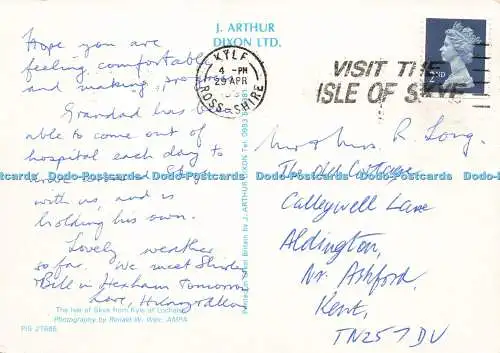 J. ARTHUR
DIXON LTD.
Hope you are
feeling comfortable
and making
Grandad has been
able to come out of
hospital each day to
with us, and is
holding his own.
Lovely weather
so far. We meet Shirley
Bill in Hexham tomorrow
Love, Hilary
The Isle of Skye from Kyle of Lochalsh
Photography by Ronald W. Weir, AMPA
PIS 21686
KYLE
4 - PM
29 APR
ROSS-SHIRE
VISIT THE
ISLE OF SKYE
2ND
Mr & Mrs. R. Long.
The Old Cottage
Calleywell Lane
Aldington,
Nr. Ashford,
Kent,
TN25 7DU
Dodo-Postcards Dodo-Postcards Dodo-Postcards Dodo-Postcards Dodo-Postcards